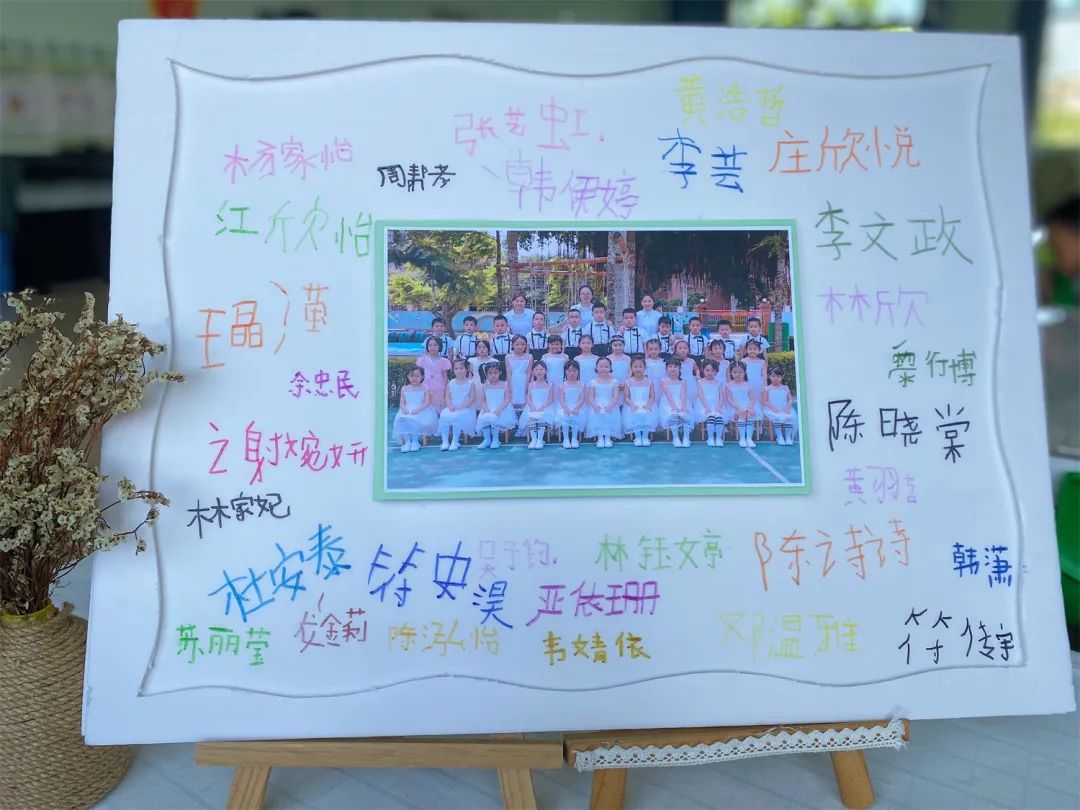 张艺虹
黄浩哲
杨家怡
周帮孝
韩伊婷
李芸
庄欣悦
江欣怡
李文政
王晶滢
林欣
余忠民
黎行博
谢婉妍
陈晓棠
黄羽
林家妃
杜安泰
符史淏
吴予钧
林钰婷
陈诗诗
韩潇
苏丽莹
金莉
陈泓怡
严依珊
韦婧依
邓温雅
符传宇